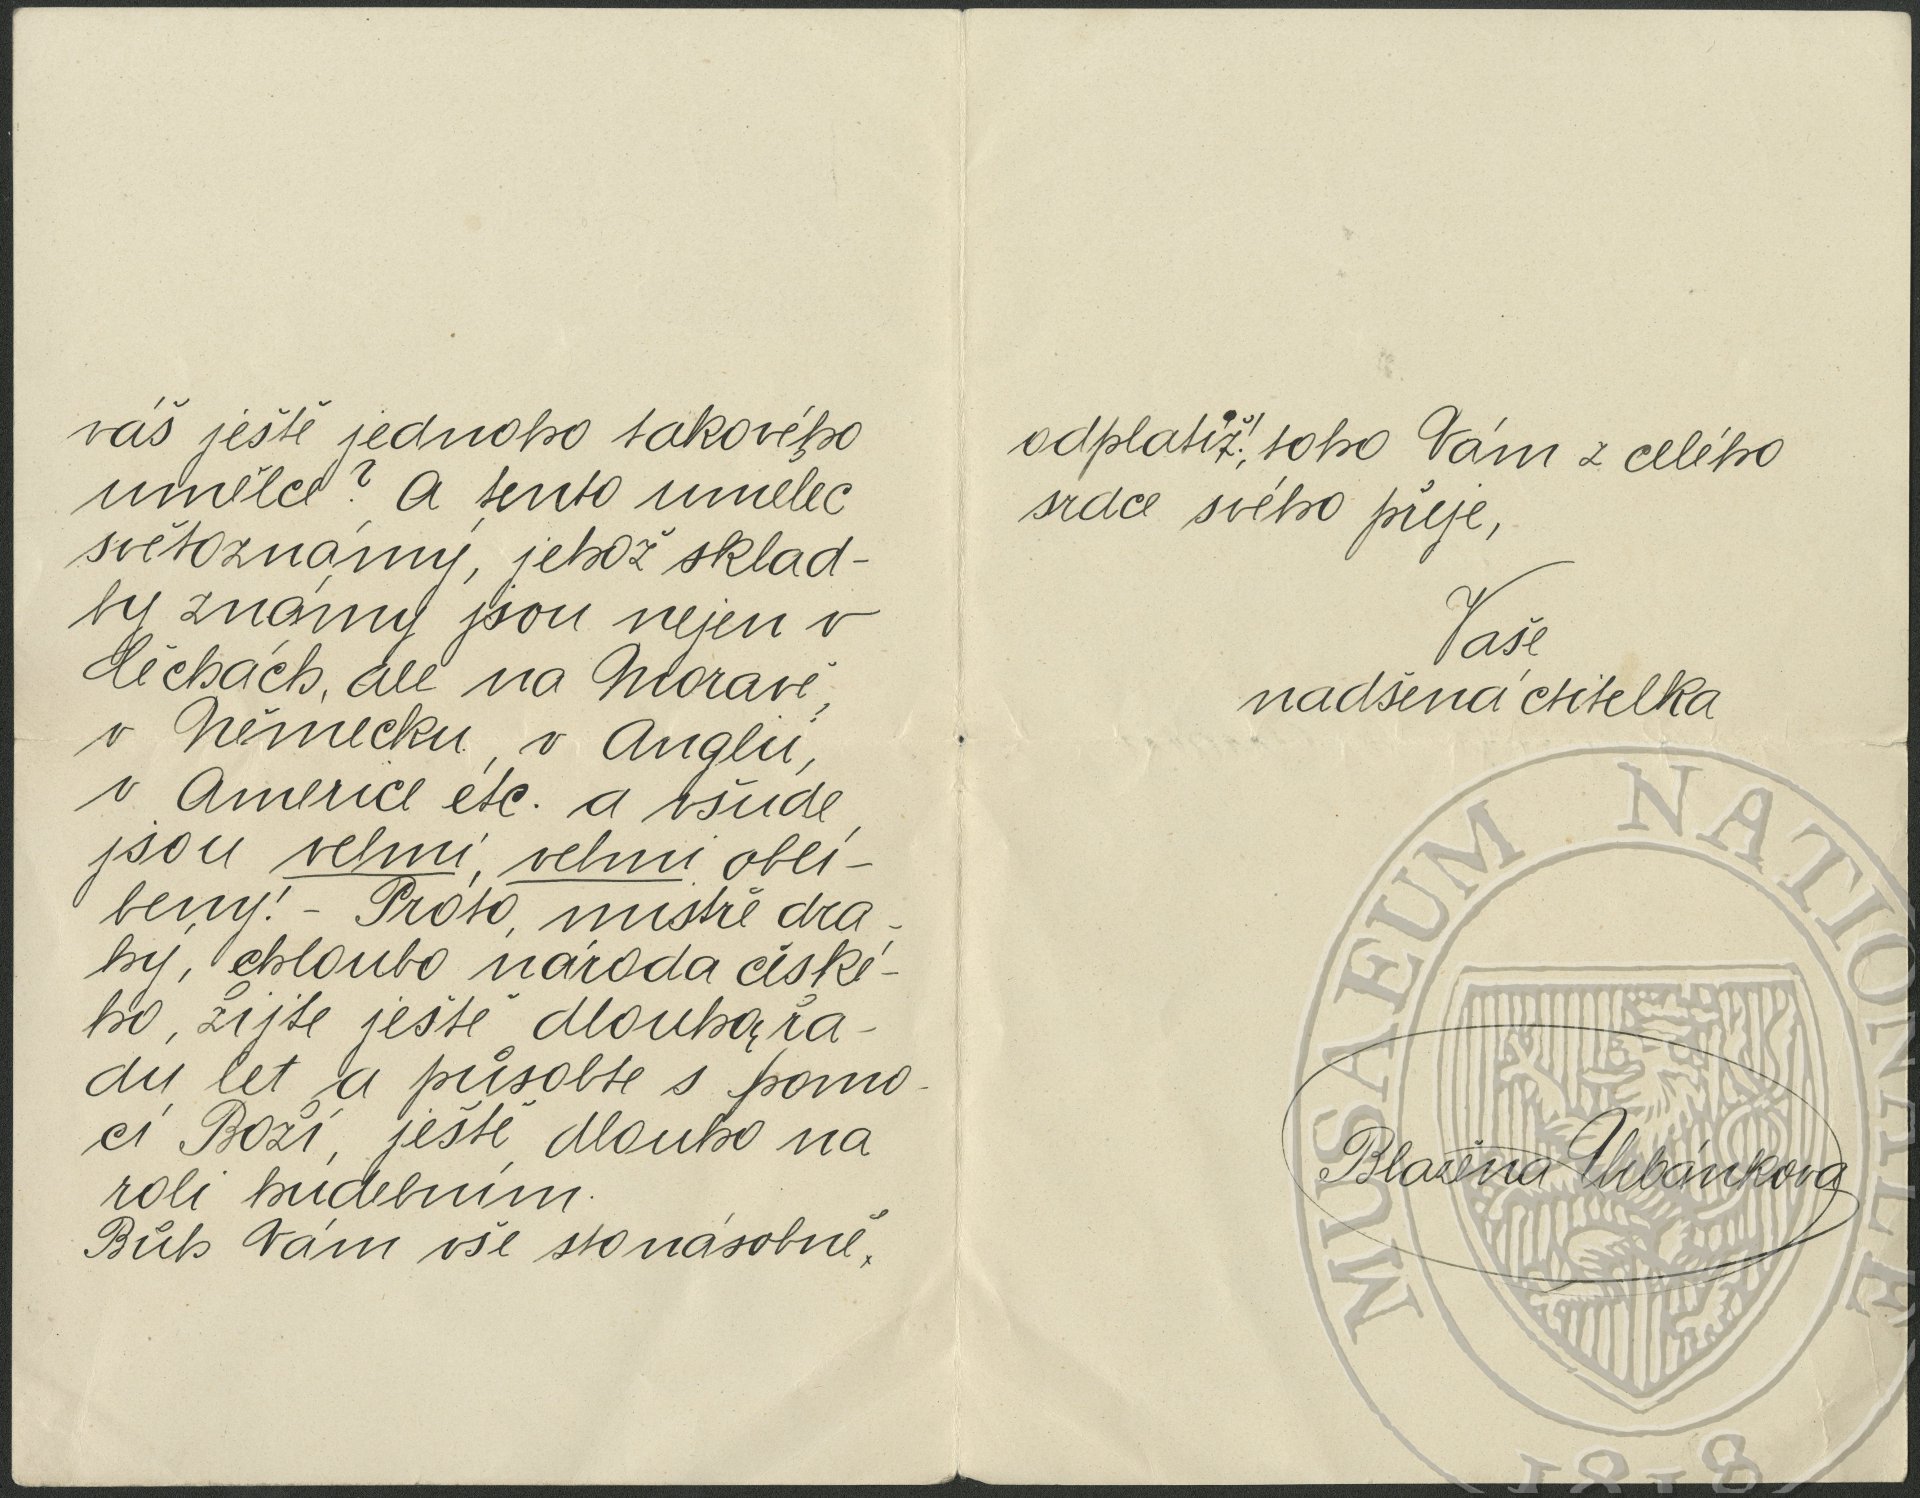 váš ještě jednoho takového
umělce? A tento umělec
světoznámý, jehož sklad-
by známy jsou nejen v
Čechách, ale na Moravě,
v Německu, v Anglii,
v Americe etc. a všude
jsou velmi, velmi oblí-
beny! - Proto, mistře dra-
hý, chloubo národa české-
ho, žijte ještě dlouhou řa-
du let a působte s pomo-
cí Boží, ještě dlouho na
roli hudebním.
Bůh Vám vše stonásobně
odplatiž!, toho Vám z celého
srdce svého přeje,
Vaše
nadšená ctitelka
Blažena Urbánkova
MUSAEUM NATIONALE
1818